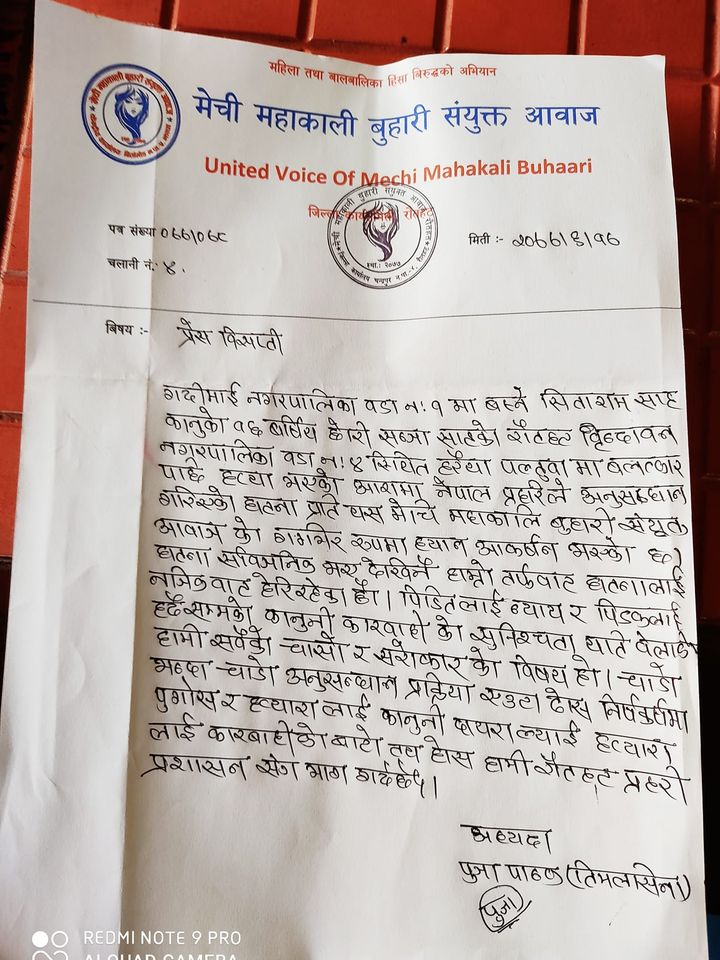 महिला तथा बालबालिका हिंसा बिरुद्धको अभियान
मेची महाकाली बुहारी संयुक्त आवाज
United Voice Of Mechi Mahakali Buhaari
जिल्ला कार्यसमिती रौतहट
पत्र संख्या ०७७/०७८
मिती :- २०७७/८/१७
चलानी नं.- ४.
बिषय :- प्रेस विज्ञप्ती
गढीमाई नगरपालिका वडा नः १ मा बस्ने सिताराम साह
कानुको १६ बर्षिय छोरी सञ्जा साहको रौतहट वृन्दावन
नगरपालिका वडा नः ४ स्थित हरैया पल्तुवा मा बलत्कार
पछि हत्या भएको आशमा नेपाल प्रहरिले अनुसन्धान
गरिरहेको घटना प्रति यस मेचि महाकालि बुहारी संयुक्त
आवाज को गम्भिर रुपमा ध्यान आकर्षन भएको छ।
घटना सार्वजनिक भए देखिनै हाम्रो तर्फबाट घटनालाई
नजिकबाट हेरिरहेका छौ। पिडितलाई न्याय र पिडकलाई
हदैसम्मको कानुनी कारवाही को सुनिश्चतता यति बेलाको
हामी सबैको चासो र सरोकार को विषय हो। चाडो
भन्दा चाडो अनुसन्धान प्रक्रिया एउटा ठोस निर्षकर्षमा
पुगोस र हत्यारा लाई कानुनी दायरा ल्याई हत्यारा
लाई कारबाहीको बाटो तय होस हामी रौतहट प्रहरी
प्रशासन संग माग गर्दछौ।
अध्यक्ष
पुजा पाठक (तिमलासिना)
पुजा
REDMI NOTE 9 PRO
AI QUAD CAMERA